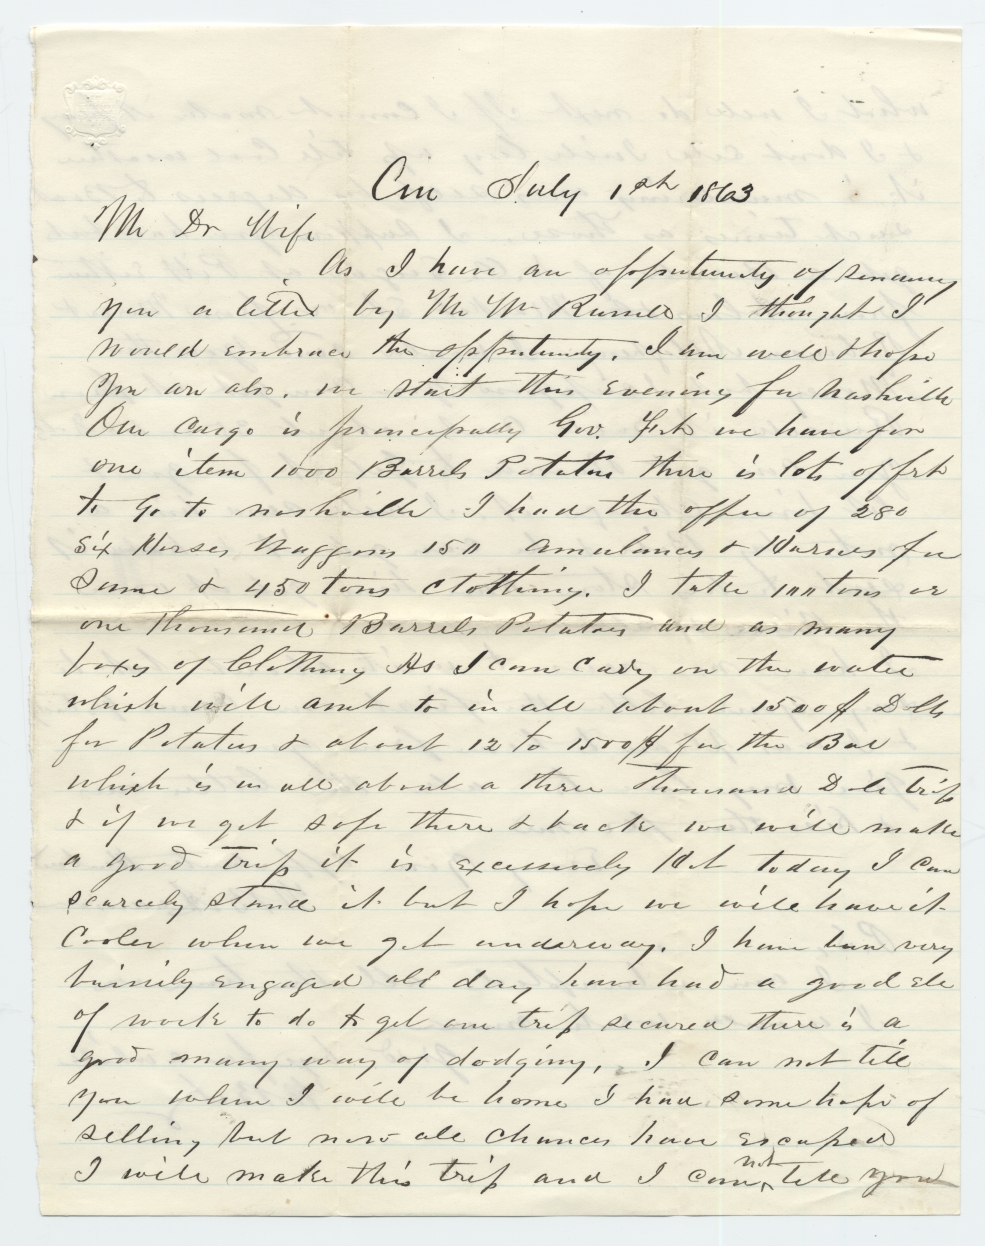 Cin July 1st 1863
My Dr Wife
As I have an oppertunity of sending
you a letter by Mr Wm Russell I thought I
would embrace the oppertunity. I am well & hope
you are also. we start this Evening for Nashville
Our Cargo is principally Gov. Frt we have for
one item 1000 Barrels Potatos there is lots of frt
to go to nashville I had the offer of 280
Six Horses Waggons 150 amulances & Harnes for
Same & 450 tons clothing. I take 100 tons or
one thousand Barrels Potatoes and as many
boxes of Clothing As I can cary on the water
which will amt to in all about 1500$ Dolls
for Potatus & about 12 to 1500$ for the Bal
which is in all about a three Thousand Dolls trip
& if we get safe there & back we will make
a good trip it is excessively Hot today I can
scarcely stand it but I hope we will have it
Cooler when we get underway. I have bun very
buisily engaged all day have had a good ele
of work to do to get our trip secured there is a
good many way of dodging, I can not tell
you when I will be home I had some hope of
selling but now all chances have escaped
I will make this trip and I can not tell you